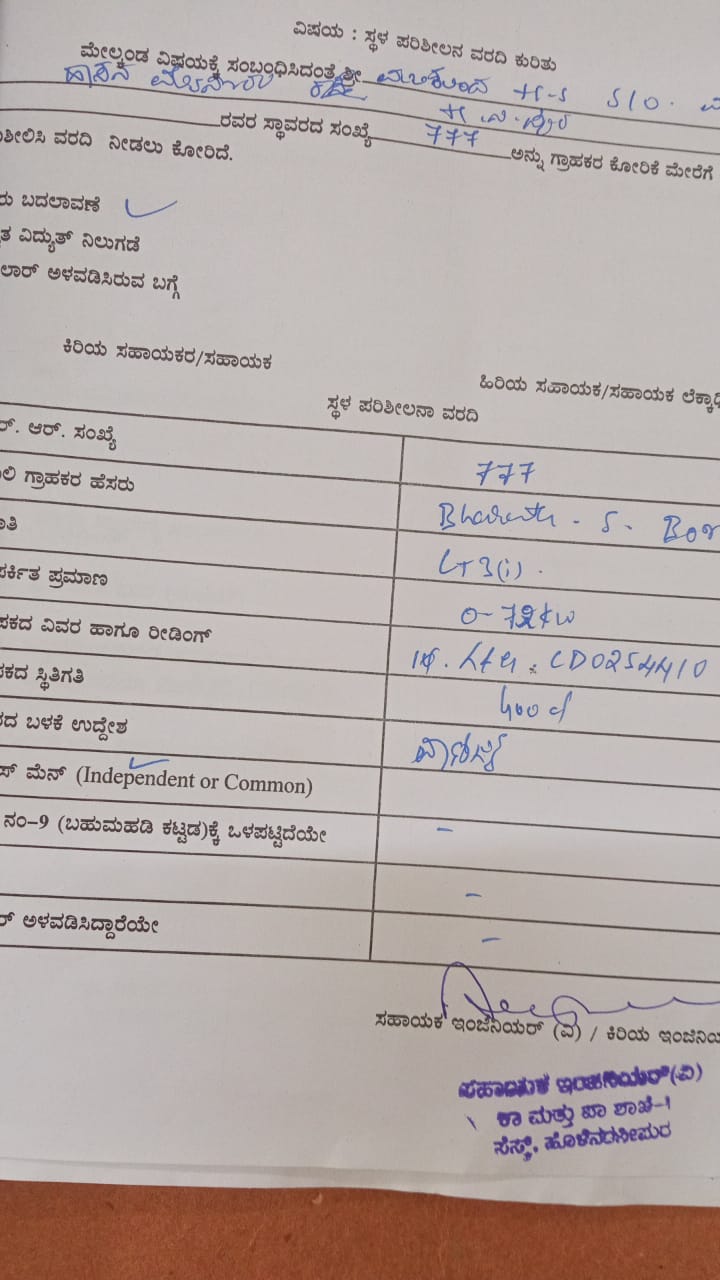 ವಿಷಯ : ಸ್ಥಳ ಪರಿಶೀಲನ ವರದಿ ಕುರಿತು
ಮೇಲ್ಕಂಡ ವಿಷಯಕ್ಕೆ ಸಂಬಂಧಿಸಿದಂತೆ ಶ್ರೀ H-S S/O.
ಹಾಸನ
ರವರ ಸ್ಥಾವರದ ಸಂಖ್ಯೆ 777 ಅನ್ನು ಗ್ರಾಹಕರ ಕೋರಿಕೆ ಮೇರೆಗೆ
ಶೀಲಿಸಿ ವರದಿ ನೀಡಲು ಕೋರಿದೆ.
ರು ಬದಲಾವಣೆ ✓
ತ ವಿದ್ಯುತ್ ನಿಲುಗಡೆ
ಲಾರ್ ಅಳವಡಿಸಿರುವ ಬಗ್ಗೆ
ಕಿರಿಯ ಸಹಾಯಕರ/ಸಹಾಯಕ
ಹಿರಿಯ ಸಹಾಯಕ/ಸಹಾಯಕ ಲೆಕ್ಕಾಧಿ
ಸ್ಥಳ ಪರಿಶೀಲನಾ ವರದಿ
ರ್. ಆರ್. ಸಂಖ್ಯೆ 777
ಲಿ ಗ್ರಾಹಕರ ಹೆಸರು Bharath - S - Bor
ತಿ LT3(i).
ಪರ್ಕಿತ ಪ್ರಮಾಣ
ಪಕದ ವಿವರ ಹಾಗೂ ರೀಡಿಂಗ್ CD0254410
ಕದ ಸ್ಥಿತಿಗತಿ Good
ದ ಬಳಕೆ ಉದ್ದೇಶ ವಾಣಿಜ್ಯ
ಸ್ ಮೆನ್ (Independent or Common)
ನಂ-9 (ಬಹುಮಹಡಿ ಕಟ್ಟಡ)ಕ್ಕೆ ಒಳಪಟ್ಟಿದೆಯೇ -
-
ರ್ ಅಳವಡಿಸಿದ್ದಾರೆಯೇ -
ಸಹಾಯಕ ಇಂಜಿನಿಯರ್ (ವಿ) / ಕಿರಿಯ ಇಂಜಿನಿಯ
ಸಹಾಯಕ ಇಂಜಿನಿಯರ್(ವಿ)
ಕಾ ಮತ್ತು ಪಾ ಶಾಖೆ-1
ಸೆಸ್ಕ್, ಹೊಳೆನರಸೀಪುರ